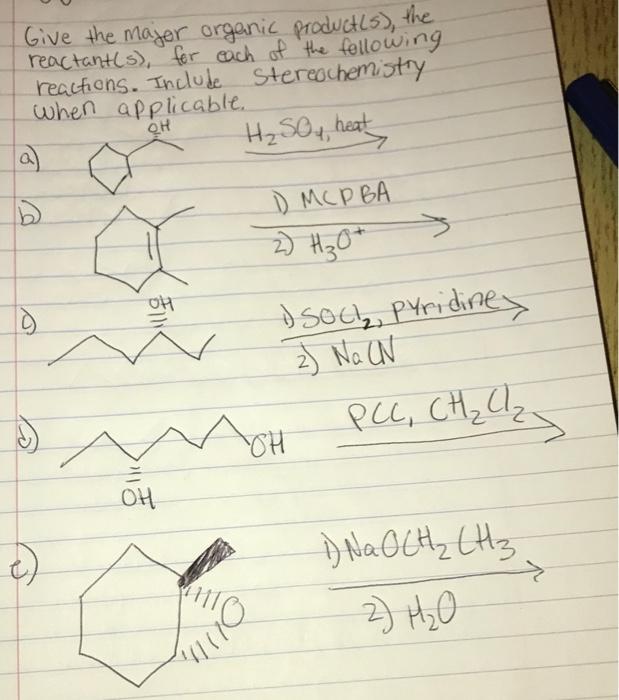 Give the major organic product(s), the
reactant(s), for each of the following
reactions. Include Stereochemistry
when applicable.
a)
OH
H2SO4, heat
b)
1) MCPBA
2) H3O+
c)
OH
1) SOCl2, pyridine
2) NaCN
d)
OH
OH
PCC, CH2Cl2
e)
O
1) NaOCH2CH3
2) H2O